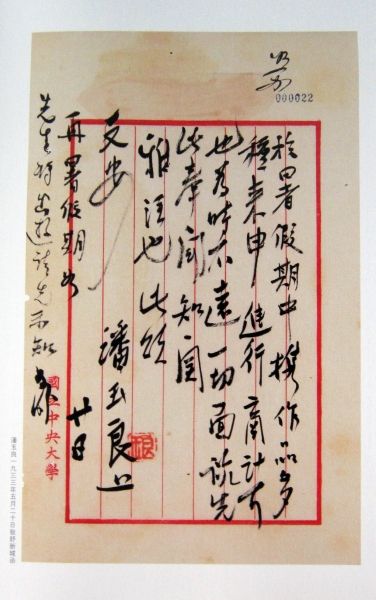 000022
於暑假期中携作品多
種来申進行商計
也為時不遠一切面詼先
此奉聞知關
雅注也此頌
文安
潘玉良上
廿日
再暑假期如
先生将出遊請先示知
國立中央大學
潘玉良一九三三年五月二十日致舒新城函